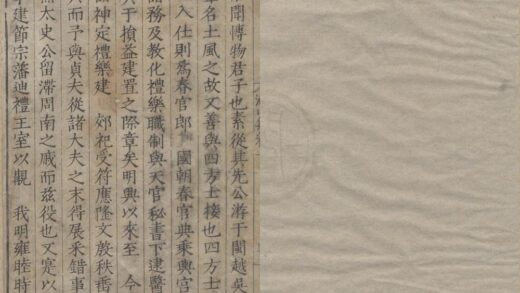 聞博物君子也素從其先公游于閩越吳
名土風之故又善與四方士接也四方士
入仕則爲春官郎 國朝春官典乘輿官
務及教化禮樂職制與天官秘書下逮醫
于損益建置之際章矣明興以來至 今
神定禮樂建 郊祀受符應隆文教秩
而予與貞夫從諸大夫之末得展采錯事
太史公留滯周南之戚而茲役也又寔以
建節宗藩迪禮王室以觀 我明雍睦時